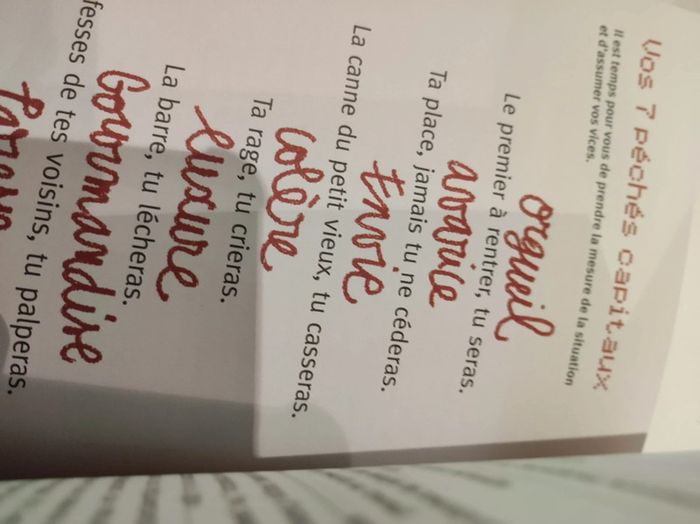 Vos 7 péchés capitaux
Il est temps pour vous de prendre la mesure de la situation
et d'assumer vos vices.
orgueil
Le premier à rentrer, tu seras.
avarice
Ta place, jamais tu ne céderas.
Envie
La canne du petit vieux, tu casseras.
colère
Ta rage, tu crieras.
luxure
La barre, tu lécheras.
Gourmandise
fesses de tes voisins, tu palperas.